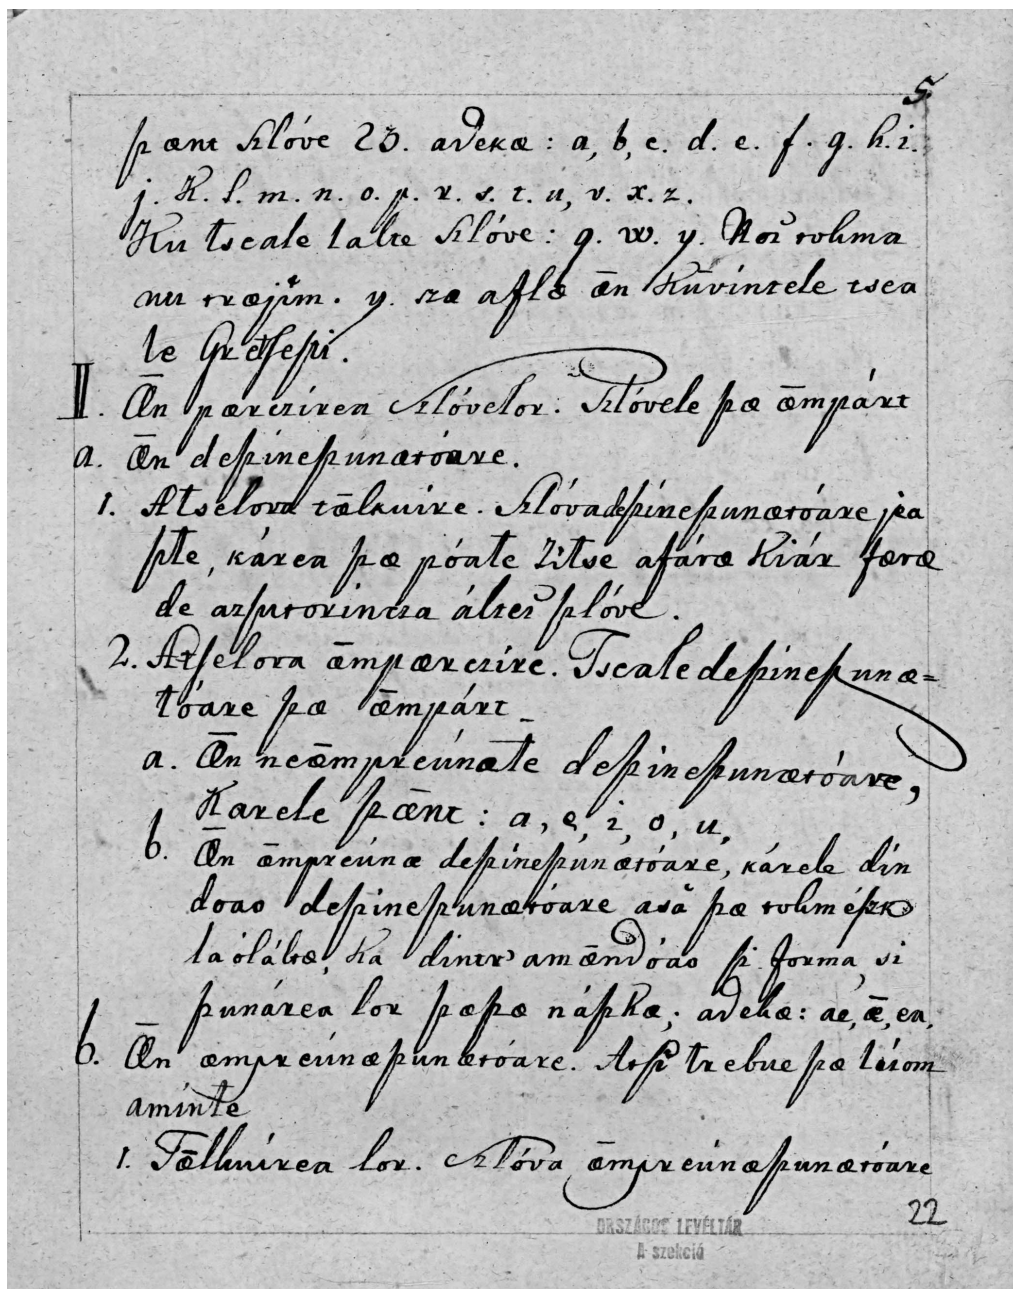 5.
ſzænt Szlóve 23. adekæ: a, b, c. d. e. f. g. h. i.
j. K. l. m. n. o. p. r. s. t. u, v. x. z.
Ku tscale lalte Szlóve: q. w. y. Noĭ tohma
nu træjim. y. sze aflæ ǣn Kūvintele tsea
le Gretseſzi.
II. Ǣn pærczirea Szlóvelor. Szlóvele ſzæ ǣmpárt
a. Ǣn deſzineſzunætóare.
1. Atselora tǣlkuire. Szlóva deſzineſzunætóare jea
ſzte, kárea ſzæ póate Zitse afáræ Kiár færæ
de azsutorintza álteĭ ſzlóve.
2. Atſelora ǣmpærczire. Tscale deſzineſzunæ=
tóare ſzæ ǣmpárt
a. Ǣn neǣmpreúnæte deſzineſzunætóare,
Karele ſzǣnt: a, e, i, o, u,
b. Ǣn ǣmpreúnæ deſzineſzunætóare, kárele din
doao deſzineſzunætóare asă ſzæ tohmészk
laolátæ, Ka dintr' amǣndóao ſzi forma, si
ſzunárea lor ſzæſzæ náſzkæ; adekæ: ae, ǣ, ea,
b. Ǣn æmpreúnæſzunætóare. Atſzi trebue ſzæ lúom
aminte
1. Tǣlkuirea lor. Szlóva ǣmpreúnæſzunætóare
22
ORSZÁGOS LEVÉLTÁR
A szekció